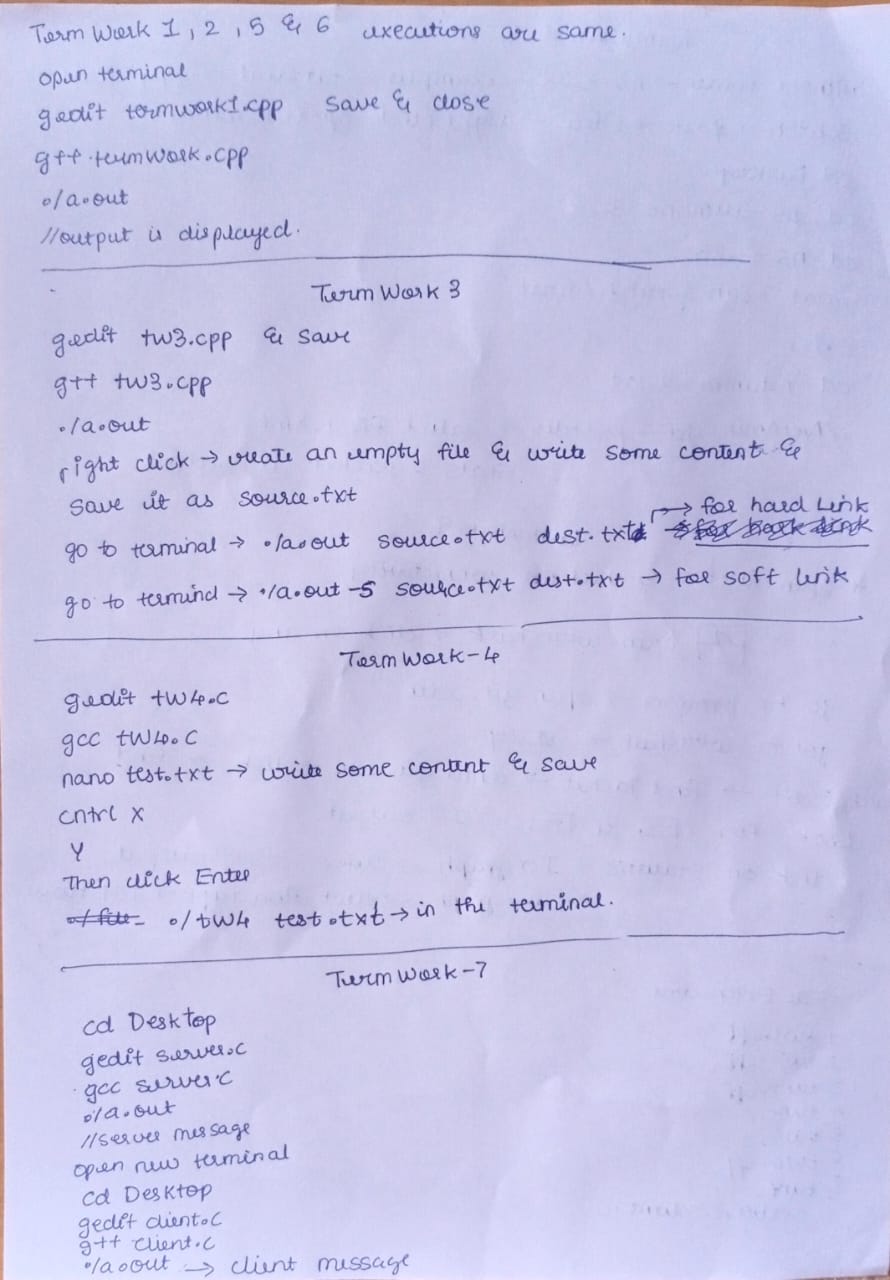 Term Work 1, 2, 5 & 6 executions are same.
open terminal
gedit termwork1.cpp save & close
g++ termwork.cpp
./a.out
//output is displayed.
Term Work 3
gedit tw3.cpp & save
g++ tw3.cpp
./a.out
right click → create an empty file & write some content &
save it as source.txt
go to terminal → ./a.out source.txt dest.txt → for hard link
go to termind → ./a.out -s source.txt dest.txt → for soft link
Term Work-4
gedit tw4.c
gcc tw4.c
nano test.txt → write some content & save
cntrl X
Y
Then click Enter
./tw4 test.txt → in the terminal.
Term Work-7
cd Desktop
gedit server.c
gcc server.c
./a.out
//server message
open new terminal
cd Desktop
gedit client.c
g++ client.c
./a.out → client message